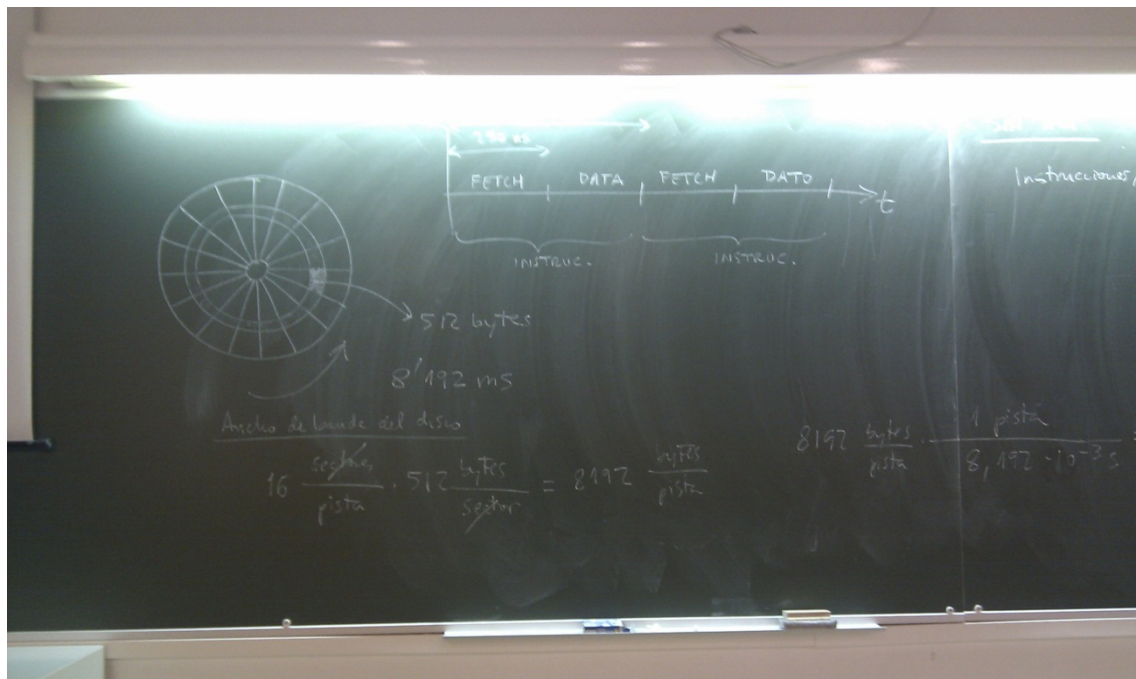 FETCH DATA FETCH DATO
t
INSTRUC. INSTRUC.
Instrucciones,
512 bytes
8'192 ms
Ancho de banda del disco
16 sectores/pista · 512 bytes/sector = 8192 bytes/pista
8192 bytes/pista · 1 pista/8,192 · 10⁻³ s